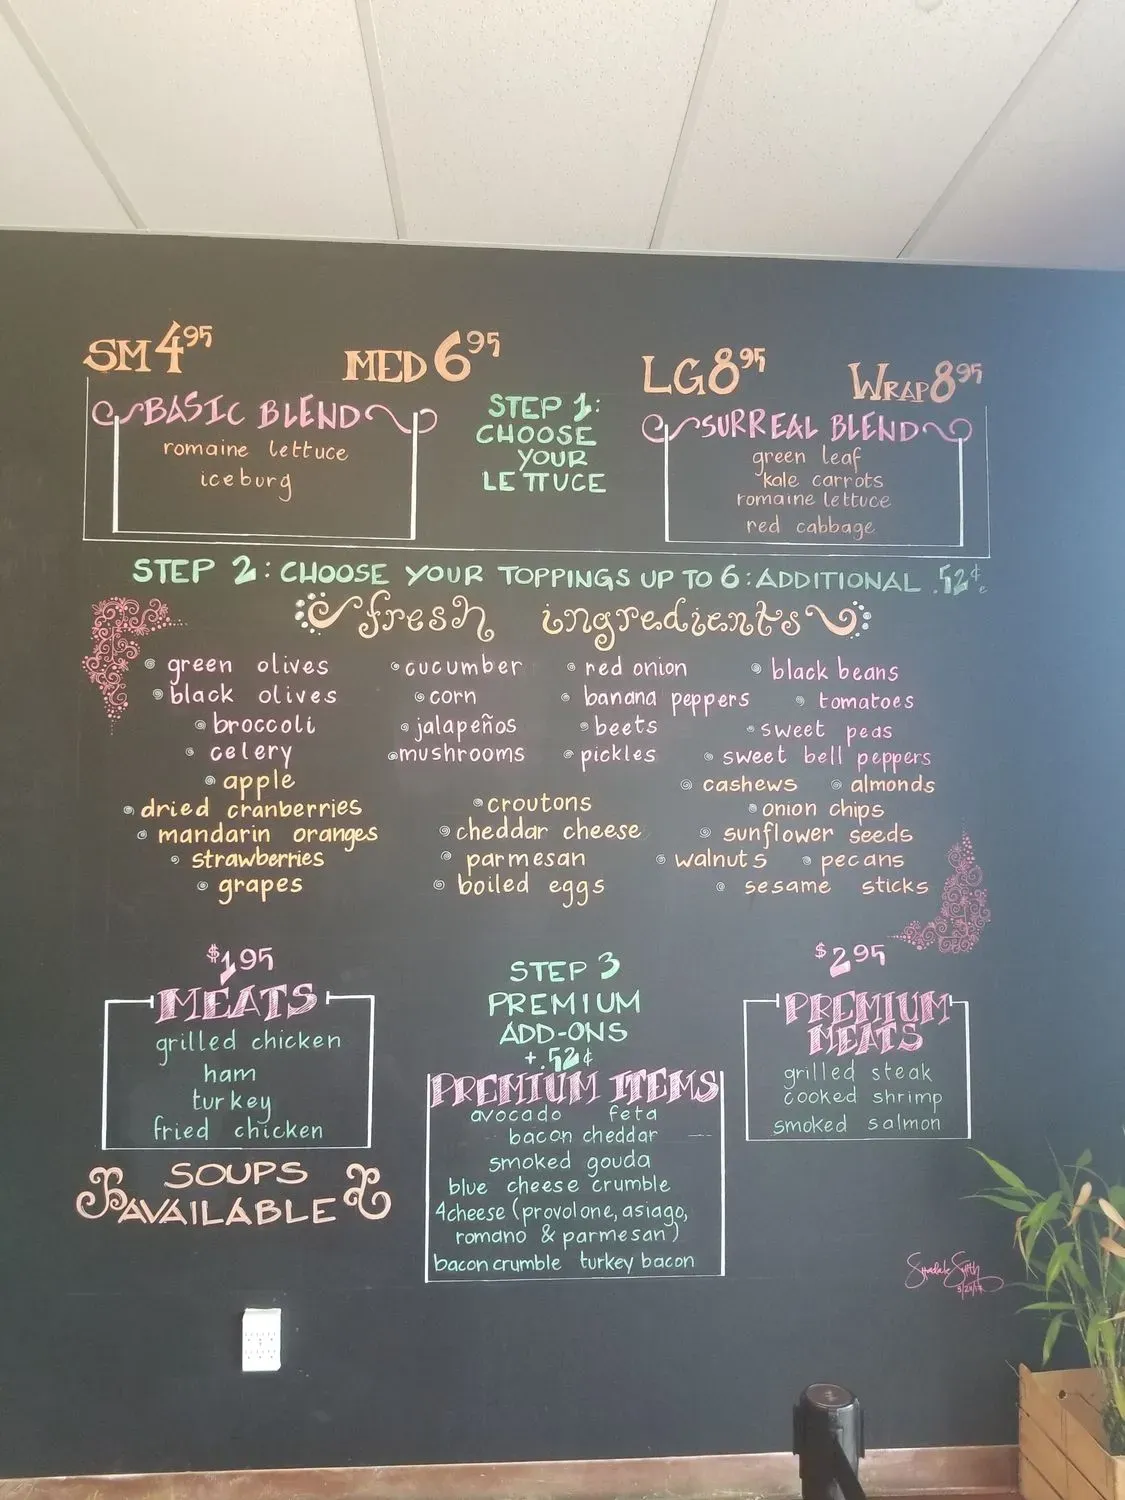 SM 4.95 MED 6.95 LG 8.95 WRAP 8.95
BASIC BLEND
romaine lettuce
iceburg
STEP 1:
CHOOSE
YOUR
LETTUCE
SURREAL BLEND
green leaf
kale carrots
romaine lettuce
red cabbage
STEP 2: CHOOSE YOUR TOPPINGS UP TO 6: ADDITIONAL .52¢
fresh ingredients
green olives
black olives
broccoli
celery
apple
dried cranberries
mandarin oranges
strawberries
grapes
cucumber
corn
jalapeños
mushrooms
croutons
cheddar cheese
parmesan
boiled eggs
red onion
banana peppers
beets
pickles
black beans
tomatoes
sweet peas
sweet bell peppers
cashews almonds
onion chips
sunflower seeds
walnuts pecans
sesame sticks
$1.95
MEATS
grilled chicken
ham
turkey
fried chicken
SOUPS
AVAILABLE
STEP 3
PREMIUM
ADD-ONS
+.52¢
PREMIUM ITEMS
avocado feta
bacon cheddar
smoked gouda
blue cheese crumble
4cheese (provolone, asiago,
romano & parmesan)
bacon crumble turkey bacon
$2.95
PREMIUM
MEATS
grilled steak
cooked shrimp
smoked salmon